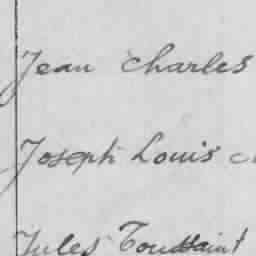 Jean Charles
Joseph Louis
Jules Toussaint